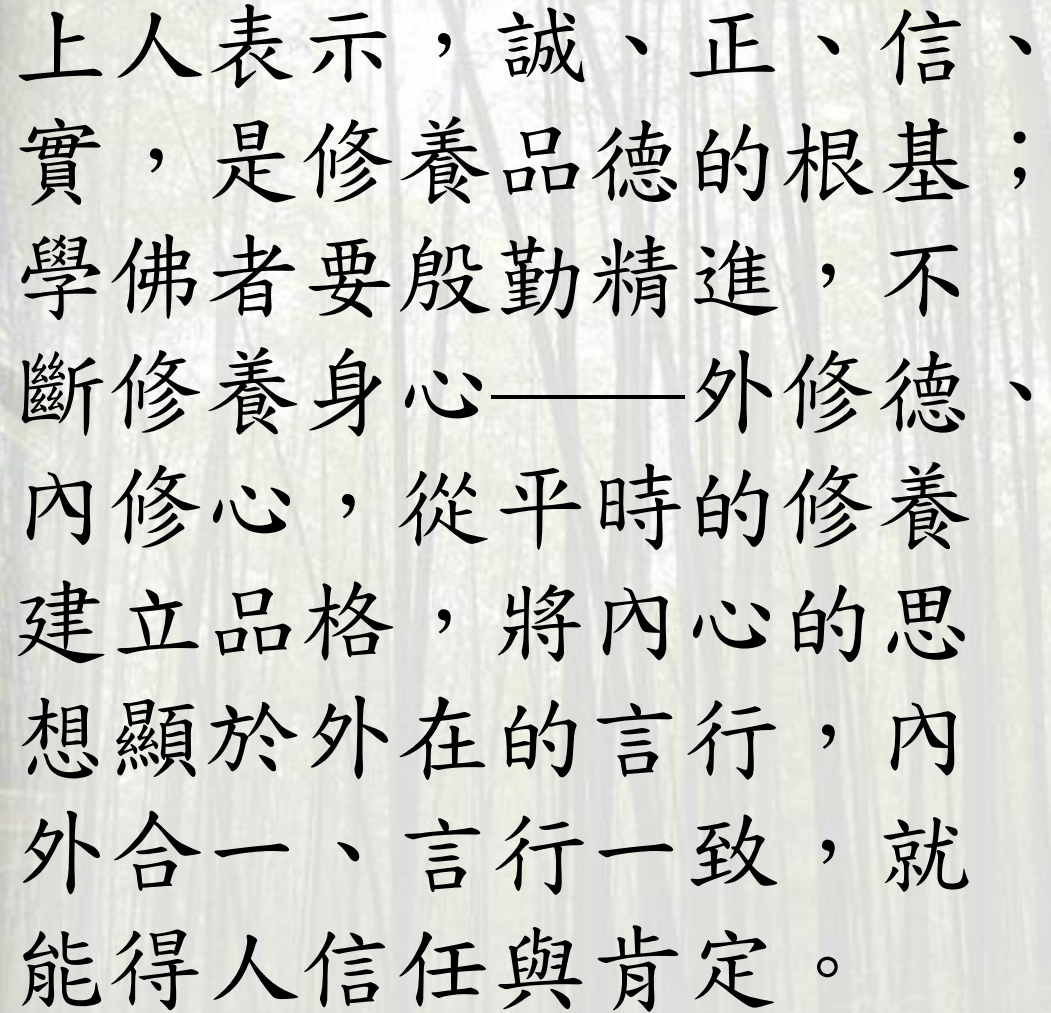 上人表示，誠、正、信、
實，是修養品德的根基；
學佛者要殷勤精進，不
斷修養身心——外修德、
內修心，從平時的修養
建立品格，將內心的思
想顯於外在的言行，內
外合一、言行一致，就
能得人信任與肯定。